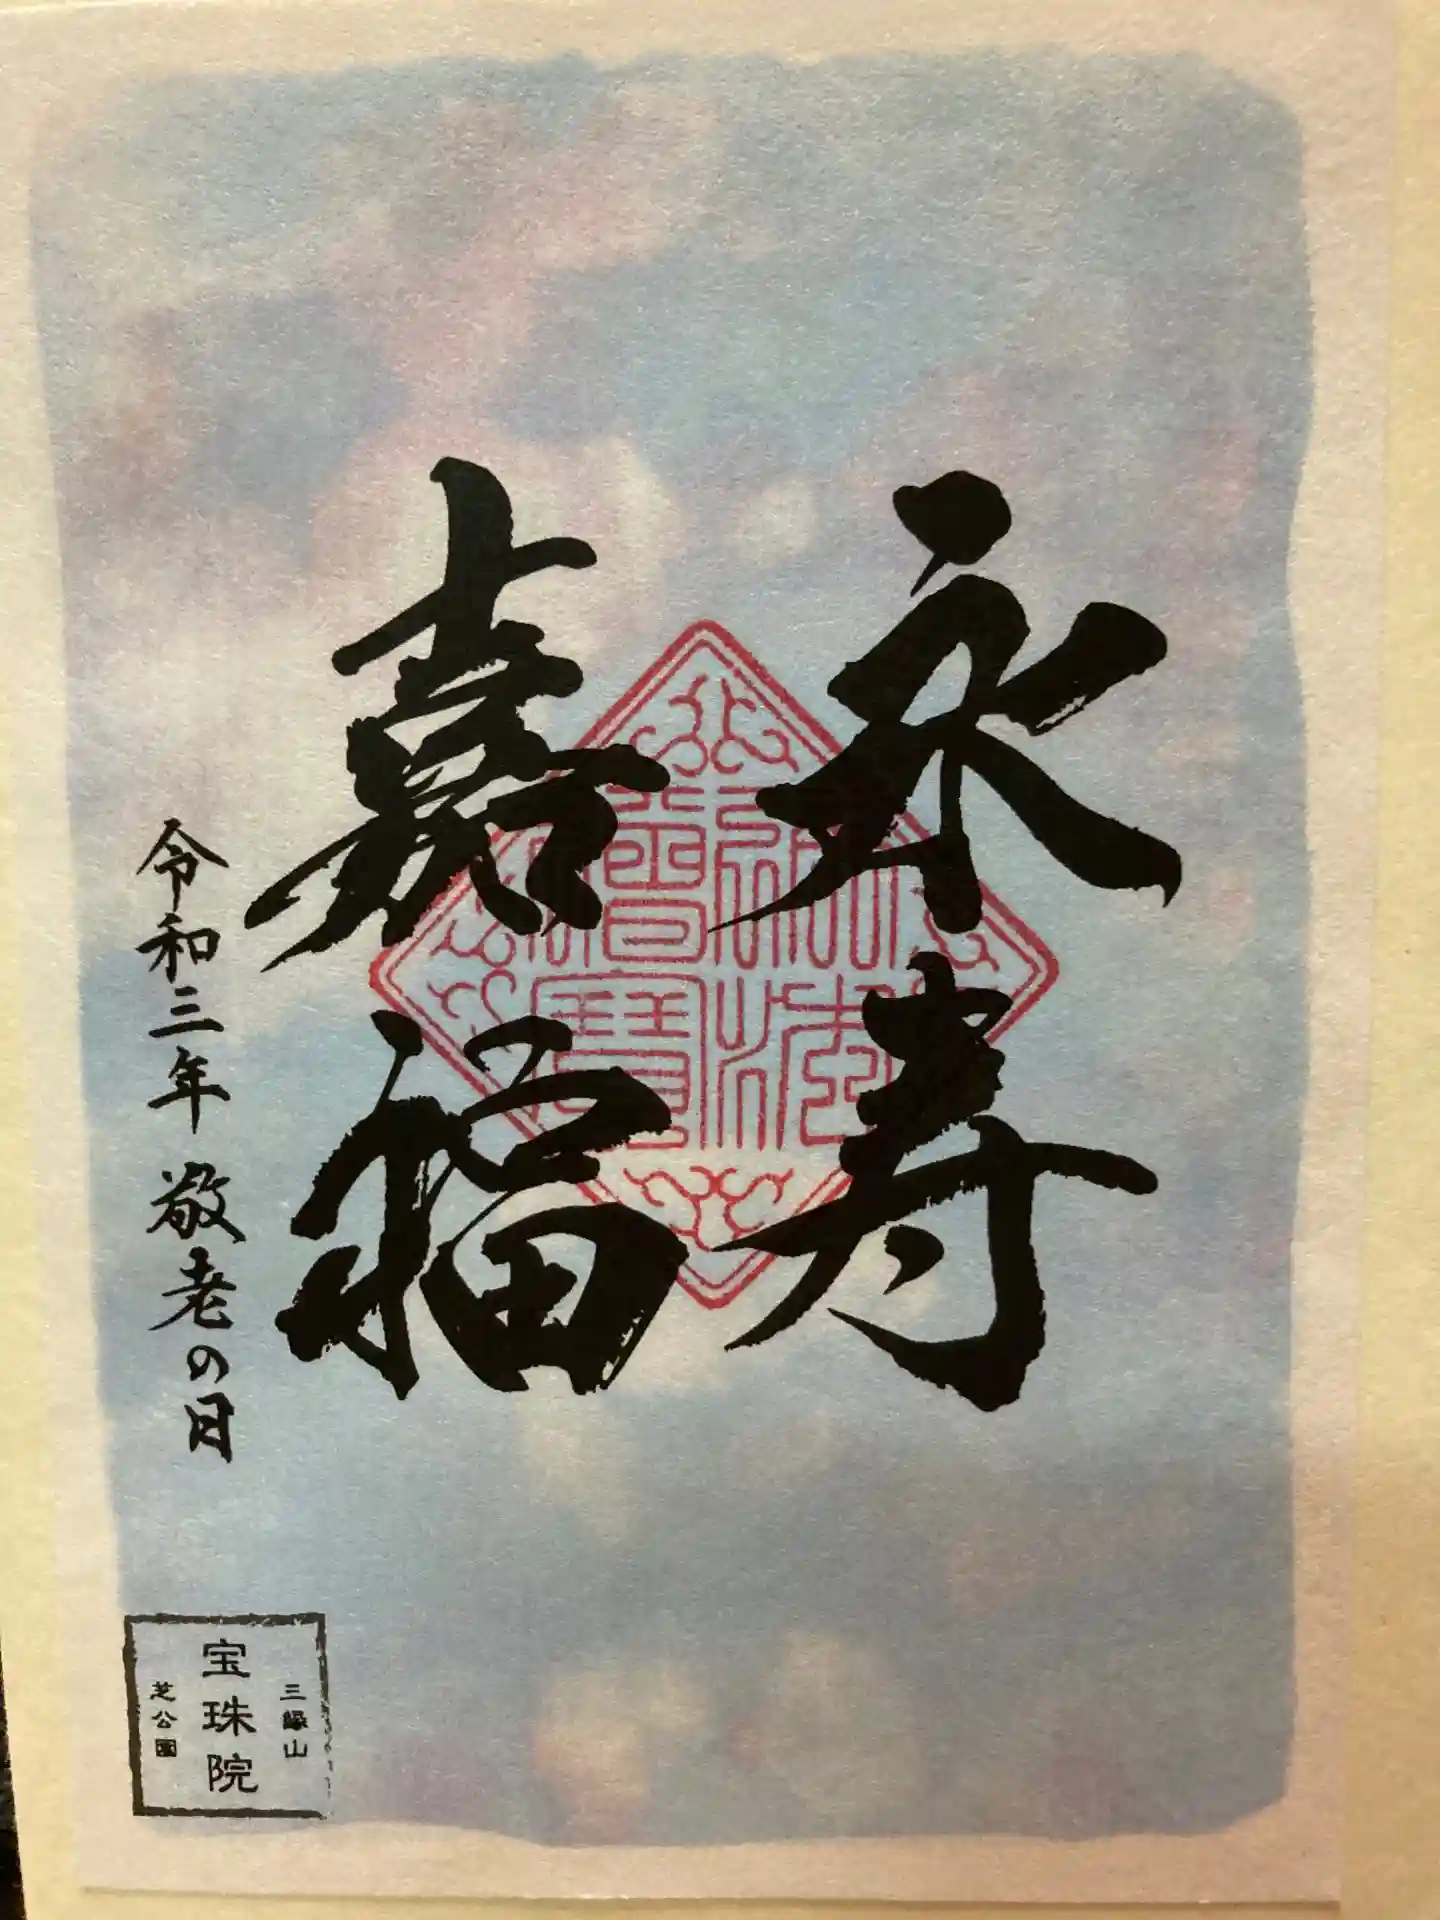 永寿
嘉福
令和三年 敬老の日
三縁山
宝珠院
芝公園